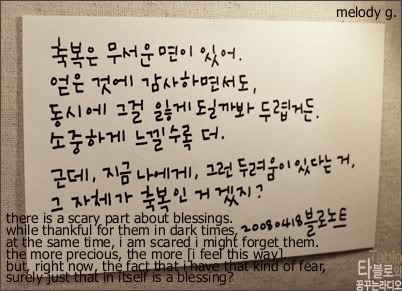 melody g.
축복은 무서운 면이 있어.
얻은 것에 감사하면서도,
동시에 그걸 잃게 될까봐 두렵거든.
소중하게 느낄수록 더.
근데, 지금 나에게, 그런 두려움이 있다는 거,
그 자체가 축복인 거 겠지?
20080418 블로노트
there is a scary part about blessings.
while thankful for them in dark times,
at the same time, i am scared i might forget them.
the more precious, the more [i feel this way].
but, right now, the fact that i have that kind of fear,
surely just that in itself is a blessing?
tablo
타블로와
꿈꾸는라디오